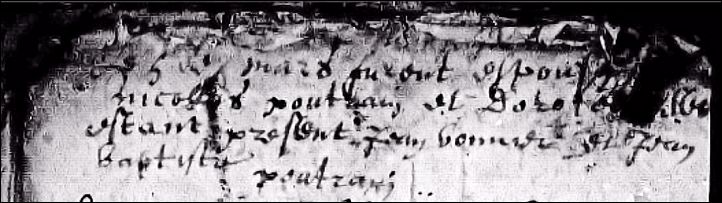 mars furent espou
nicollas poutrain et Dorote
estant present Jean bonnier et Jean
baptiste
poutrain